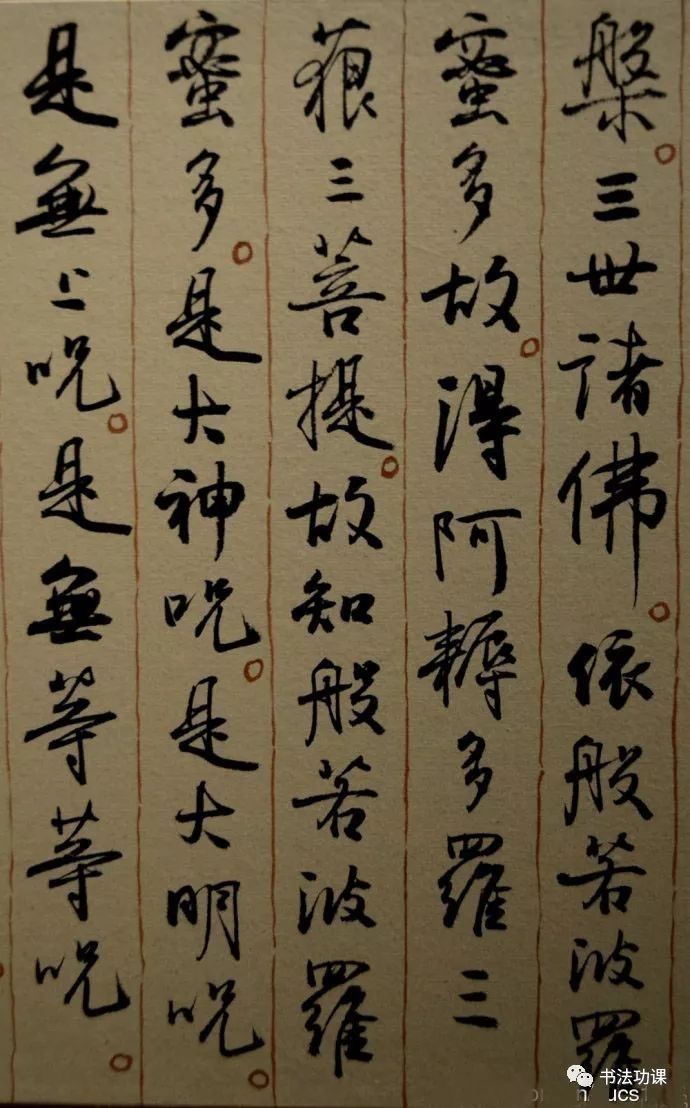 槃。三世諸佛。依般若波羅
蜜多故。得阿耨多羅三
藐三菩提。故知般若波羅
蜜多。是大神咒。是大明咒。
是無上咒。是無等等咒。
书法功课